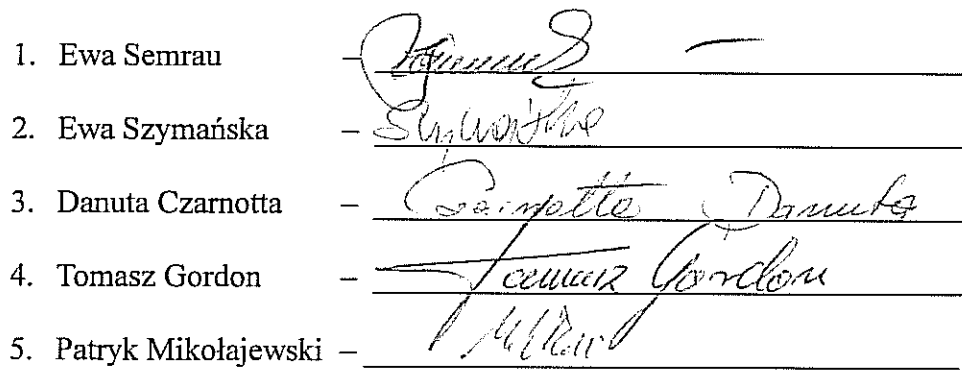 1. Ewa Semrau –
2. Ewa Szymańska –
3. Danuta Czarnotta – Czarnotta Danuta
4. Tomasz Gordon – Tomasz Gordon
5. Patryk Mikołajewski –